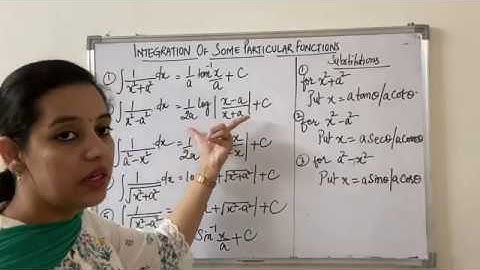 INTEGRATION OF SOME PARTICULAR FUNCTIONS
① ∫ 1/(x²+a²) dx = 1/a tan⁻¹ x/a + C
∫ 1/(x²-a²) dx = 1/2a log |(x-a)/(x+a)| + C
∫ 1/(a²-x²) dx = 1/2a + C
∫ 1/√(x²+a²) dx = +√(x²+a²)| + C
⑤ ∫ 1/√(x²-a²) +√(x²-a²)| + C
Sin⁻¹ x/a + C
Substitutions
① for x²+a²
Put x = a tanθ/a cotθ
② for x²-a²
Put x = a secθ/a cosecθ
③ for a²-x²
Put x = a sinθ/a cosθ